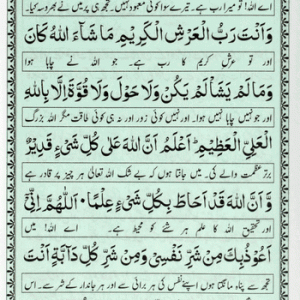 اے اللہ! تو میرا رب ہے۔ تیرے سوا کوئی معبود نہیں۔ تجھ ہی پر میں نے بھروسہ کیا۔
وَاَنْتَ رَبُّ الْعَرْشِ الْكَرِيْمِ مَا شَآءَ اللهُ كَانَ
اور تو عرش کریم کا رب ہے۔ جو اللہ نے چاہا ہوا
وَمَا لَمْ يَشَأْ لَمْ يَكُنْ وَلَا حَوْلَ وَلَا قُوَّةَ اِلَّا بِاللهِ
اور جو نہیں چاہا نہیں ہوا۔ اور نہیں کوئی زور اور نہ ہی کوئی طاقت مگر اللہ بزرگ
الْعَلِىِّ الْعَظِيْمِ اَعْلَمُ اَنَّ اللهَ عَلٰى كُلِّ شَىْءٍ قَدِيْرٌ
برتر عظمت والے کی۔ میں جانتا ہوں کہ بے شک اللہ تعالیٰ ہر چیز پر قادر ہے
وَّ اَنَّ اللهَ قَدْ اَحَاطَ بِكُلِّ شَىْءٍ عِلْمًا۔ اَللّٰهُمَّ اِنِّىْ
اور تحقیق اللہ کا علم ہر شئے کو محیط ہے۔ اے اللہ! میں
اَعُوْذُ بِكَ مِنْ شَرِّ نَفْسِىْ وَمِنْ شَرِّ كُلِّ دَآبَّةٍ اَنْتَ
تجھ سے پناہ مانگتا ہوں اپنے نفس کی ہر برائی سے اور ہر جاندار کے شر سے۔ اس